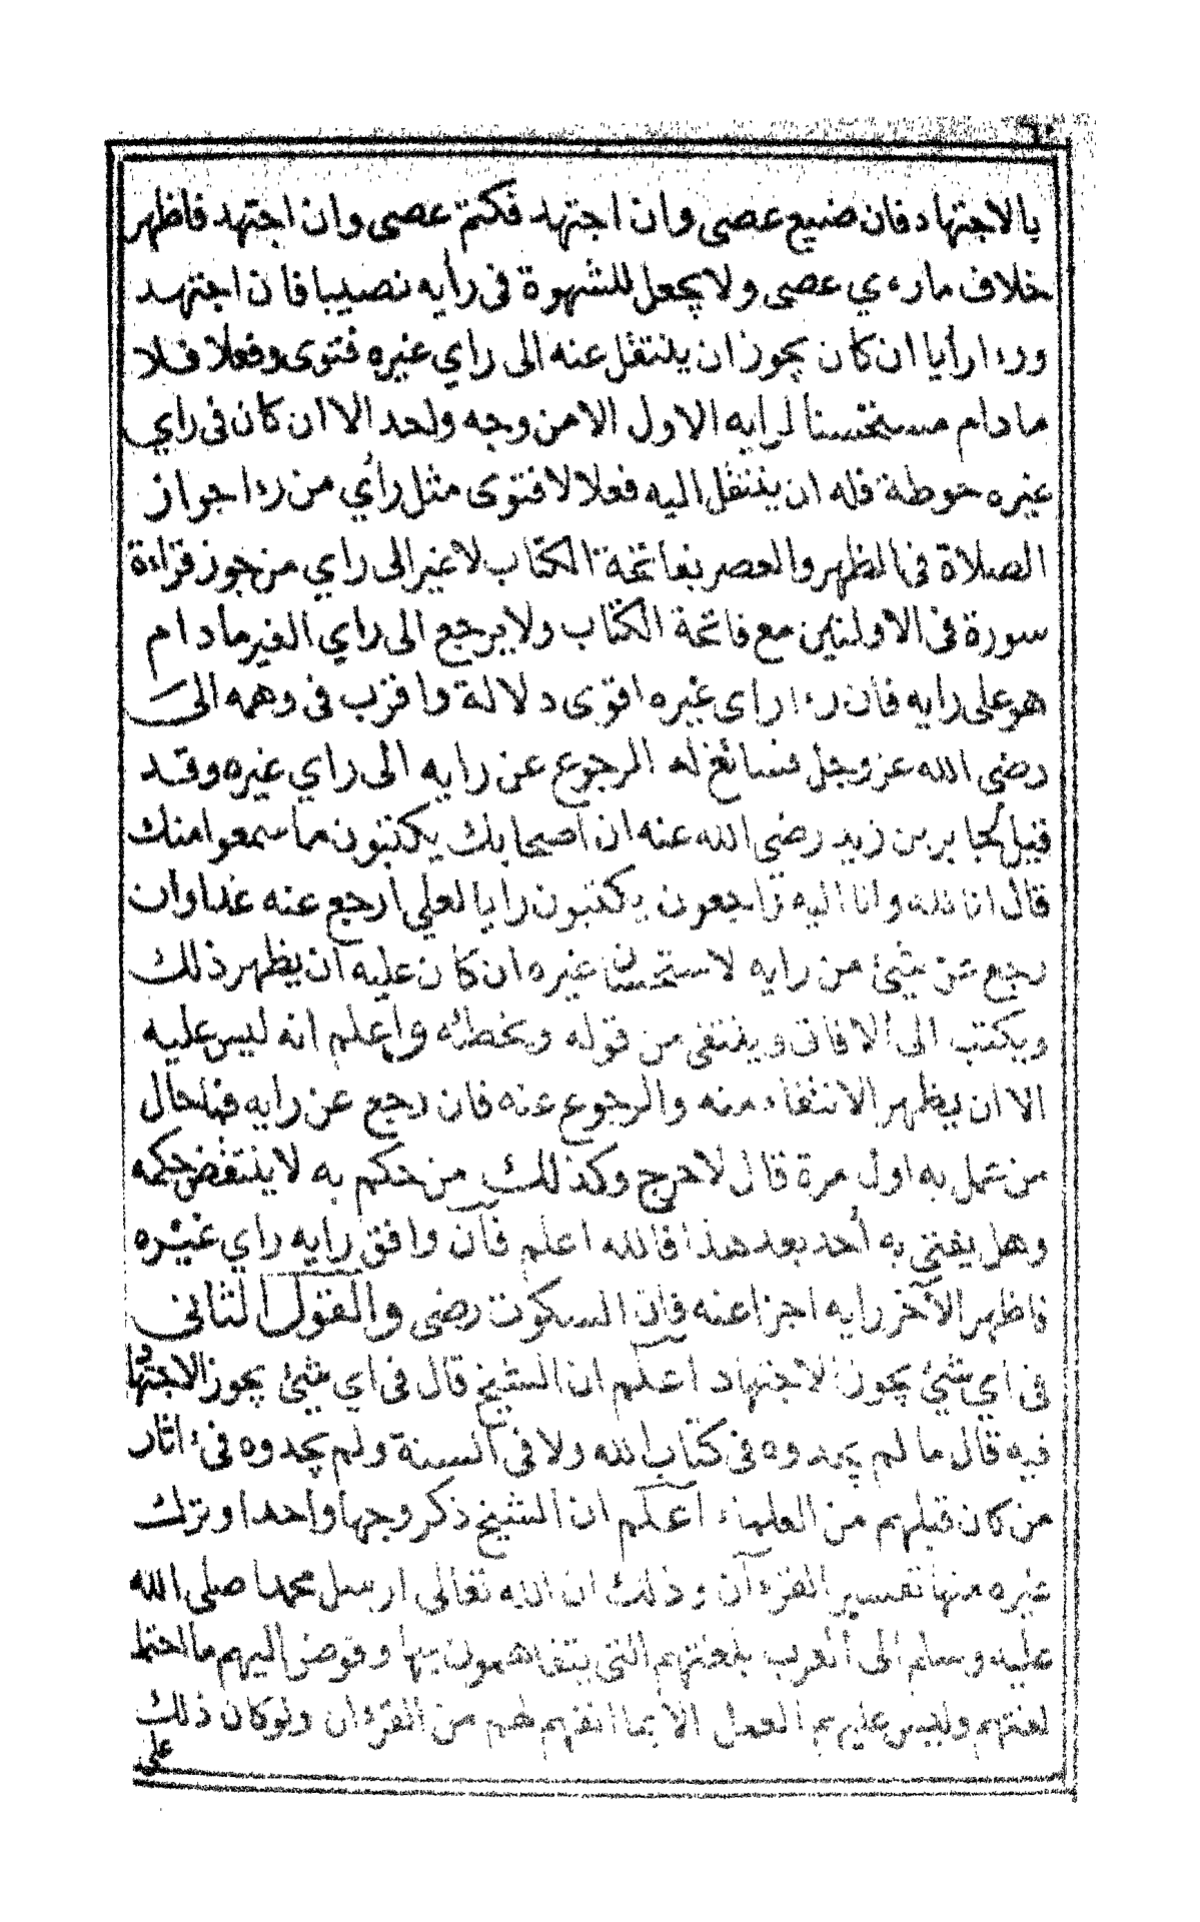 ٦٠
بالاجتهاد فان ضيع عصى وان اجتهد فكتم عصى وان اجتهد فاظهر
خلاف ما رءي عصى ولا يجعل للشهوة فى رأيه نصيبا فان اجتهد
ورءا رأيا ان كان يجوز ان ينتقل عنه الى راي غيره فتوى وفعلا فلا
ما دام مستحسنا لرايه الاول الا من وجه واحد الا ان كان فى راي
غيره حوطة فله ان ينتقل اليه فعلا لا فتوى مثل رأي من رءا جواز
الصلاة فى الظهر والعصر بفاتحة الكتاب لا غير الى راي من جوز قراءة
سورة فى الاولتين مع فاتحة الكتاب ولا يرجع الى راي الغير ما دام
هو على رايه فان رءا راى غيره اقوى دلالة واقرب فى وهمه الى
رضى الله عز وجل فسائغ له الرجوع عن رايه الى راي غيره وقد
قيل لجابر بن زيد رضي الله عنه ان اصحابك يكتبون ما سمعوا منك
قال انا لله وانا اليه راجعون يكتبون رايا لعلي ارجع عنه غدا وان
رجع عن شئ من رايه لاستحسان غيره ان كان عليه ان يظهر ذلك
ويكتب الى الافاق وينتفى من قوله ويخطئه واعلم انه ليس عليه
الا ان يظهر الانتفاء منه والرجوع عنه فان رجع عن رايه فما حال
من عمل به اول مرة قال لا حرج وكذلك من حكم به لا ينتقض حكمه
وهل يفتي به أحد بعد هذا فالله اعلم فان وافق رايه راي غيره
فاظهر الآخر رايه اجزا عنه فان السكوت رضى والقول الثانى
فى اي شئ يجوز الاجتهاد اعلم ان الشيخ قال فى اي شئ يجوز الاجتهاد
فيه قال ما لم يجدوه فى كتاب الله ولا فى السنة ولم يجدوه فى ءاثار
من كان قبلهم من العلماء اعلم ان الشيخ ذكر وجها واحدا وترك
غيره منها تفسير القرءان وذلك ان الله تعالى ارسل محمدا صلى الله
عليه وسلم الى العرب بلغتهم التى يتفاهمون بها وفوض اليهم ما احتمل
لغتهم وليس عليهم العمل الا بما انفهم لهم من القرءان ولو كان ذلك
على